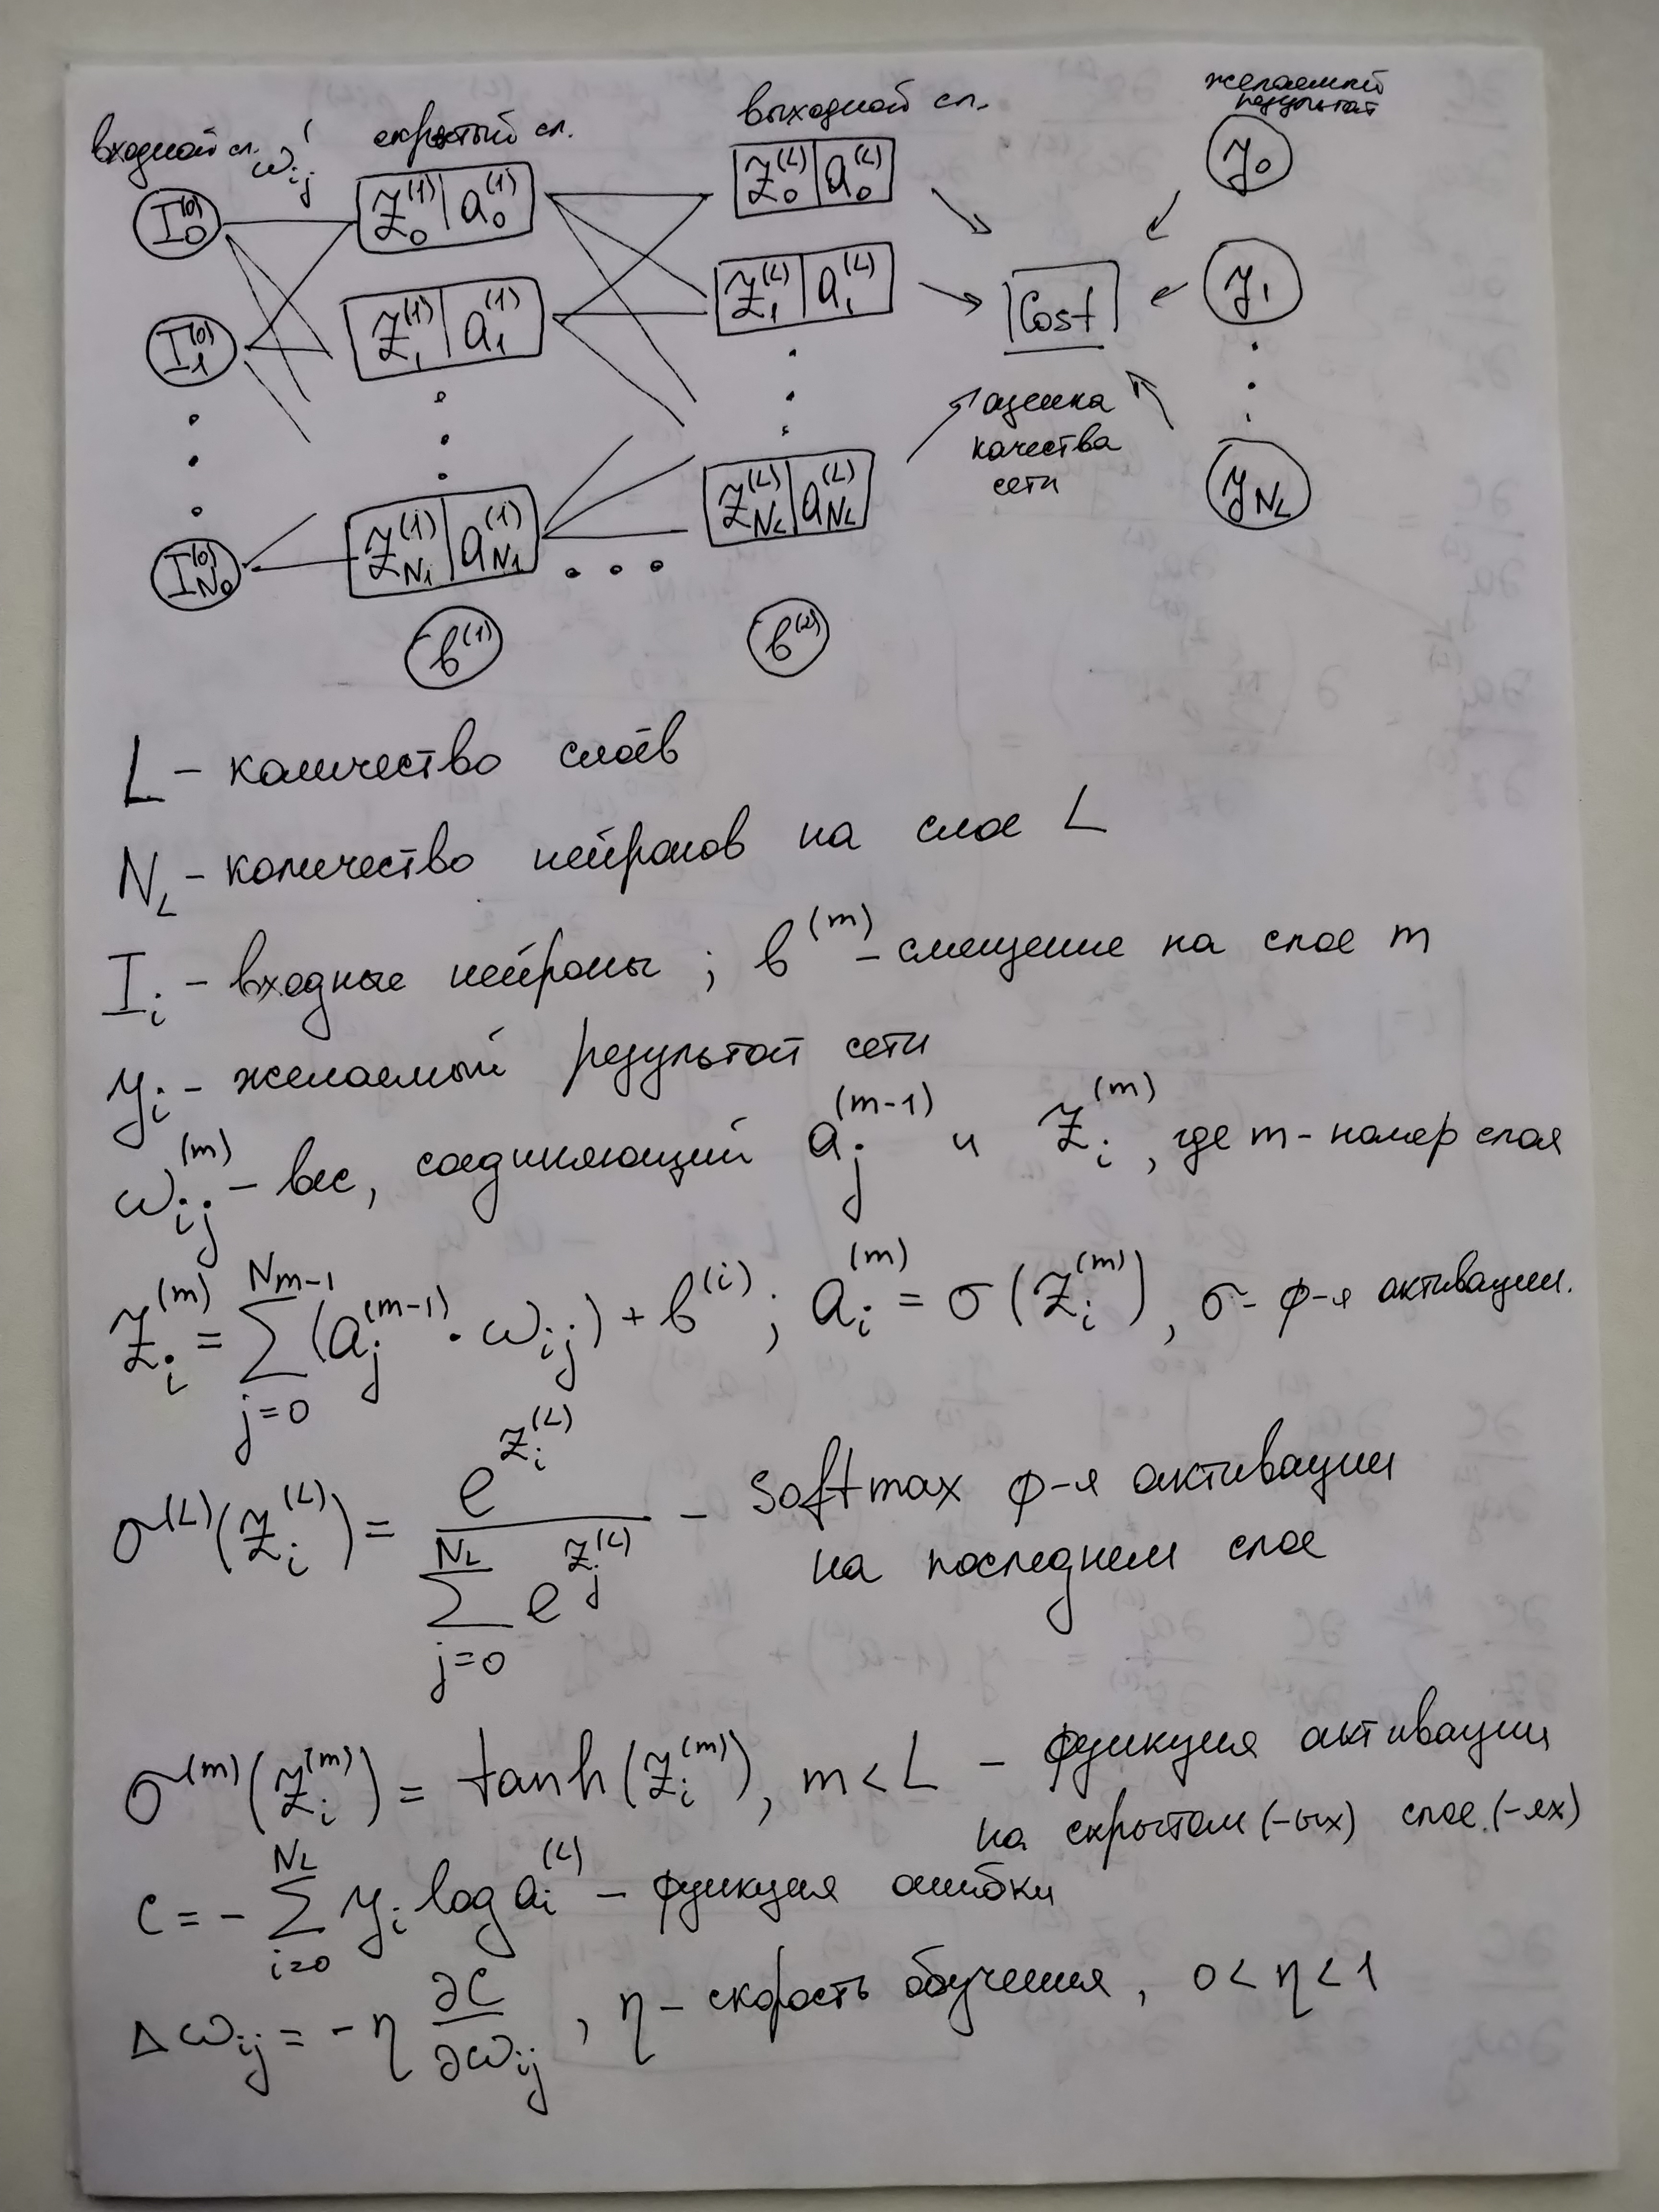 входной сл. ω'ᵢⱼ скрытый сл. выходной сл. желаемый
результат
I₀⁽⁰⁾ Z₀⁽¹⁾ | a₀⁽¹⁾ Z₀⁽ᴸ⁾ | a₀⁽ᴸ⁾ y₀
I₁⁽⁰⁾ Z₁⁽¹⁾ | a₁⁽¹⁾ Z₁⁽ᴸ⁾ | a₁⁽ᴸ⁾ Cost y₁
оценка
качества
сети
I_{N₀}⁽⁰⁾ Z_{N₁}⁽¹⁾ | a_{N₁}⁽¹⁾ ... Z_{N_L}⁽ᴸ⁾ | a_{N_L}⁽ᴸ⁾ y_{N_L}
b⁽¹⁾ b⁽ᴸ⁾
L – количество слоёв
N_L – количество нейронов на слое L
Iᵢ – входные нейроны ; b^(m) – смещение на слое m
yᵢ – желаемый результат сети
ω_{ij}^(m) – вес, соединяющий a_j^(m-1) и Z_i^(m), где m – номер слоя
Z_i^(m) = ∑_{j=0}^{N_{m-1}} (a_j^(m-1) · ω_{ij}) + b^(i) ; a_i^(m) = σ(Z_i^(m)), σ – ф-я активации.
σ^(L)(Z_i^(L)) = e^{Z_i^(L)} / ∑_{j=0}^{N_L} e^{Z_j^(L)} – Softmax ф-я активации
на последнем слое
σ^(m)(Z_i^(m)) = tanh(Z_i^(m)), m < L – функция активации
на скрытом (-ых) слое (-ях)
C = – ∑_{i=0}^{N_L} y_i log a_i^(L) – функция ошибки
Δω_{ij} = –η ∂C/∂ω_{ij} , η – скорость обучения, 0 < η < 1